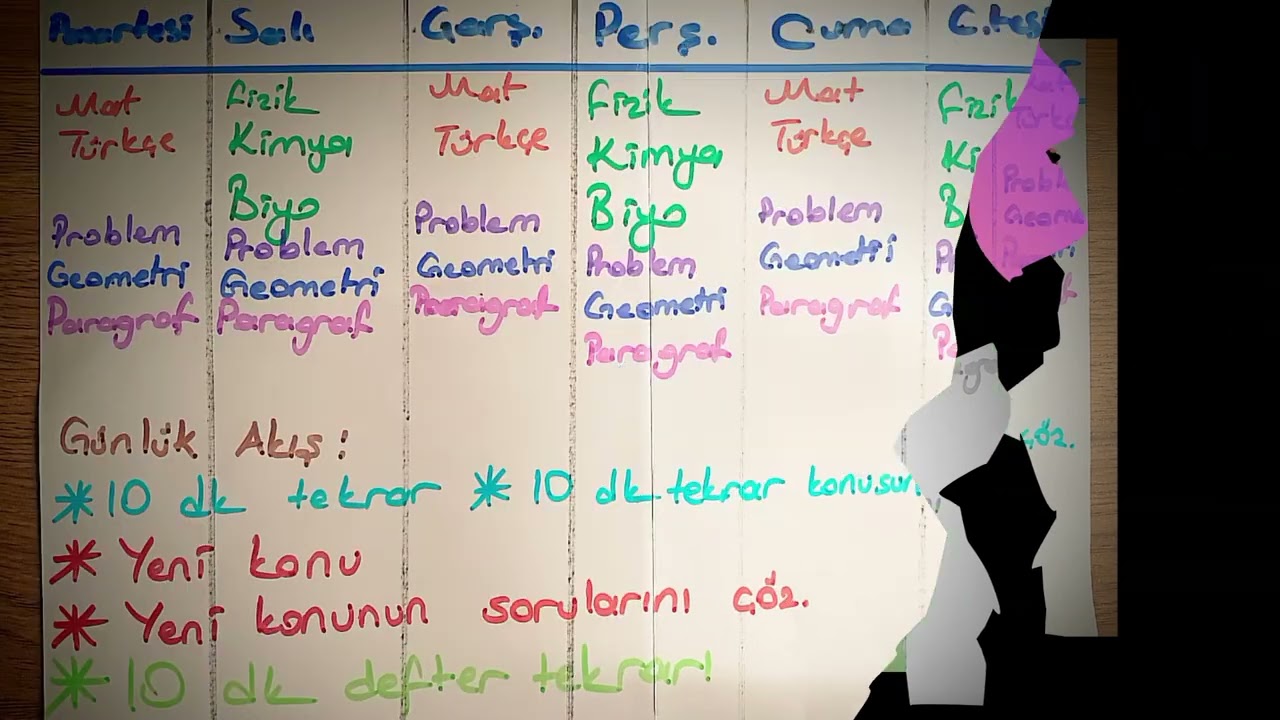 Pazartesi Salı Çarş. Perş. Cuma C.tesi
Mat Fizik Mat Fizik Mat Fizik
Türkçe Kimya Türkçe Kimya Türkçe Ki
Biyo Biyo B
Problem Problem Problem Problem Problem
Geometri Geometri Geometri Geometri Geometri
Paragraf Paragraf Paragraf Paragraf Paragraf
Günlük Akış:
* 10 dk tekrar * 10 dk tekrar konusun çöz.
* Yeni konu
* Yeni konunun sorularını çöz.
* 10 dk defter tekrarı